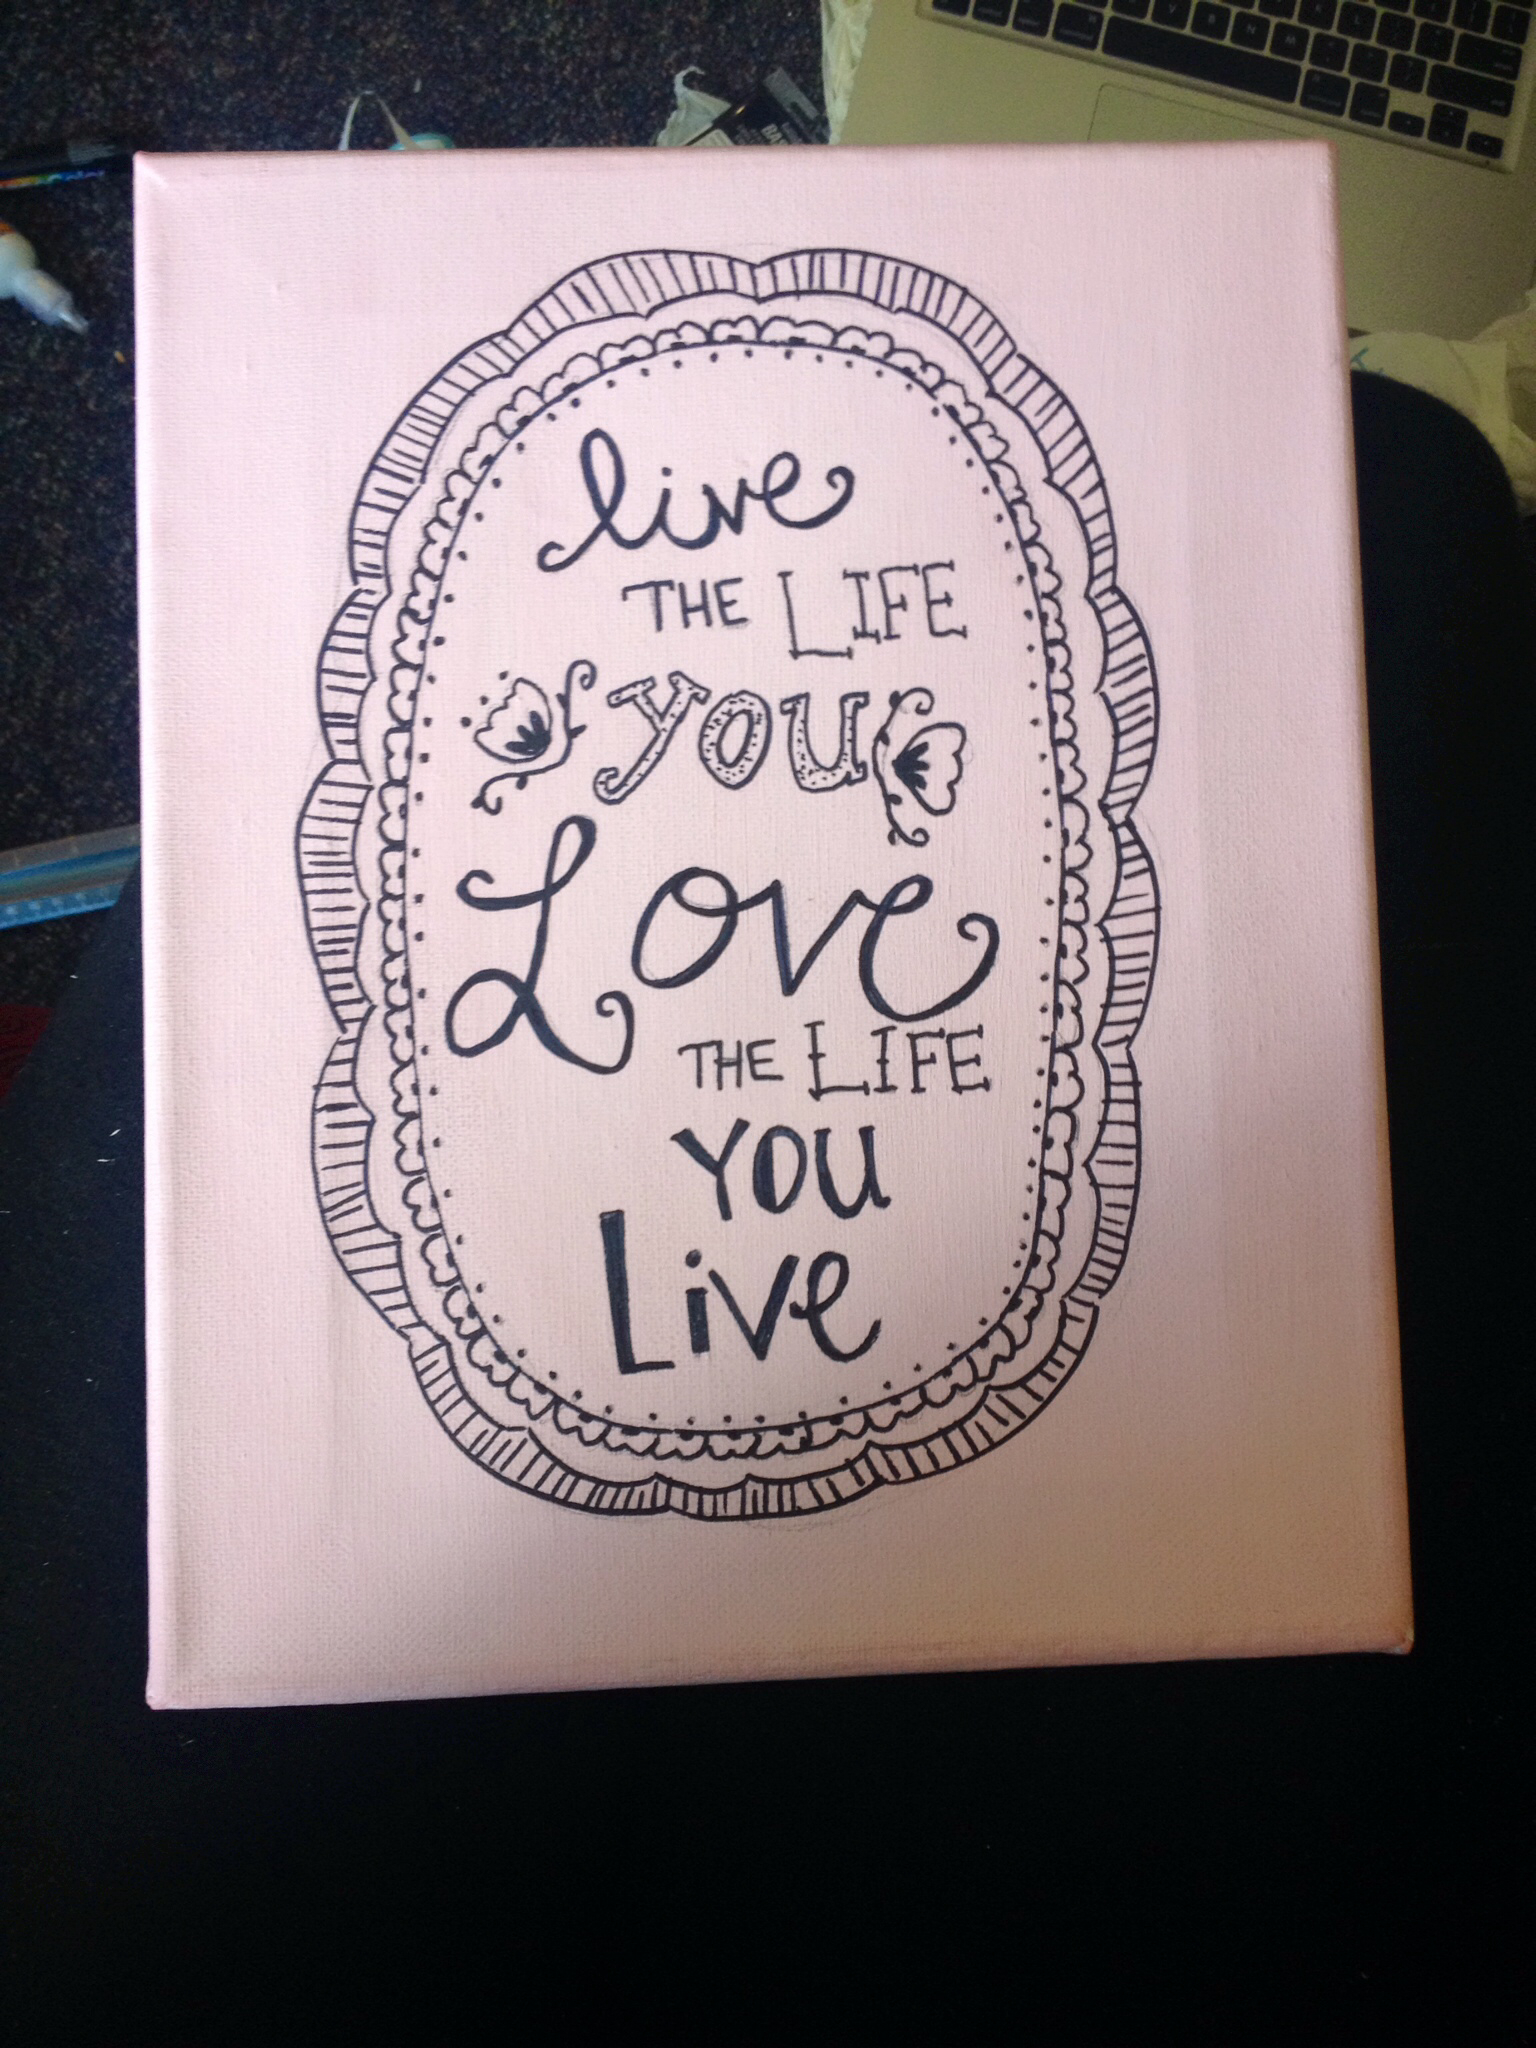 live
THE LIFE
you
Love
THE LIFE
YOU
Live